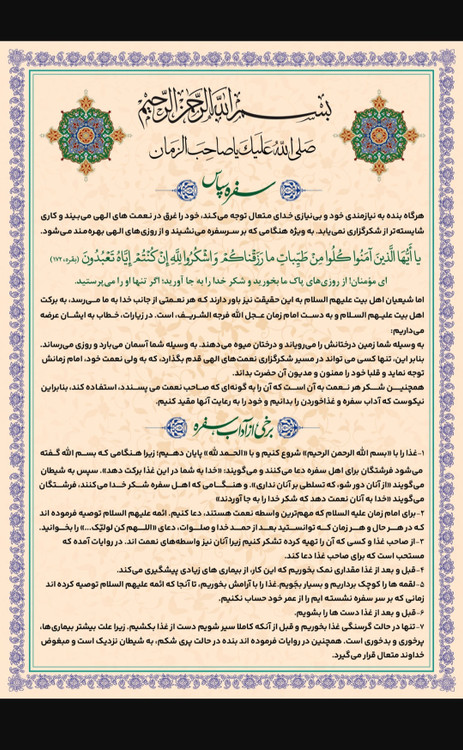 بسم الله الرحمن الرحیم
صلی الله علیک یا صاحب الزمان
سفره سپاس
هرگاه بنده به نیازمندی خود و بی‌نیازی خدای متعال توجه می‌کند، خود را غرق در نعمت های الهی می‌بیند و کاری
شایسته‌تر از شکرگزاری نمی‌یابد. به ویژه هنگامی که بر سرسفره می‌نشیند و از روزی‌های الهی بهره‌مند می‌شود.
یا أَیُّهَا الَّذینَ آمَنُوا کُلُوا مِنْ طَیِّباتِ ما رَزَقْناکُمْ وَ اشْکُرُوا لِلَّهِ إِنْ کُنْتُمْ إِیَّاهُ تَعْبُدُونَ (بقره، ۱۷۲)
ای مؤمنان! از روزی‌های پاک ما بخورید و شکر خدا را به جا آورید؛ اگر تنها او را می‌پرستید.
اما شیعیان اهل بیت علیهم السلام به این حقیقت نیز باور دارند که هر نعمتی از جانب خدا به ما می‌رسد، به برکت
اهل بیت علیهم السلام و به دست امام زمان عجل الله فرجه الشریف، است. در زیارات، خطاب به ایشان عرضه
می‌داریم:
به وسیله شما زمین درختانش را می‌رویاند و درختان میوه می‌دهند. به وسیله شما آسمان می‌بارد و روزی می‌رساند.
بنابر این، تنها کسی می تواند در مسیر شکرگزاری نعمت‌های الهی قدم بگذارد، که به ولی نعمت خود، امام زمانش
توجه نماید و قلبا خود را ممنون و مدیون آن حضرت بداند.
همچنین شکر هر نعمت به آن است که آن را به گونه‌ای که صاحب نعمت می پسندد، استفاده کند، بنابراین
نیکوست که آداب سفره و غذاخوردن را بدانیم و خود را به رعایت آنها مقید کنیم.
برخی از آداب سفره
۱-غذا را با «بسم الله الرحمن الرحیم» شروع کنیم و با «الحمدلله» پایان دهیم؛ زیرا هنگامی که بسم الله گفته
می‌شود فرشتگان برای اهل سفره دعا می‌کنند و می‌گویند: «خدا به شما در این غذا برکت دهد». سپس به شیطان
می‌گویند «از آنان دور شو، که تسلطی بر آنان نداری». و هنگامی که اهل سفره شکر خدا می‌کنند، فرشتگان
می‌گویند «خدا به آنان نعمت دهد که شکر خدا را به جا آوردند»
۲-برای امام زمان علیه السلام که مهم‌ترین واسطه نعمت هستند، دعا کنیم. ائمه علیهم السلام توصیه فرموده اند
که در هر حال و هر زمان که توانستید بعد از حمد خدا و صلوات، دعای «اللهم کن لولیّک...» را بخوانید.
۳-از صاحب غذا و کسی که آن را تهیه کرده تشکر کنیم زیرا آنان نیز واسطه‌های نعمت اند. در روایات آمده که
مستحب است که برای صاحب غذا دعا کند.
۴-قبل و بعد از غذا مقداری نمک بخوریم که این کار، از بیماری های زیادی پیشگیری می‌کند.
۵-لقمه ها را کوچک برداریم و بسیار بجویم.غذا را با آرامش بخوریم، تا آنجا که ائمه علیهم السلام توصیه کرده اند
زمانی که بر سر سفره نشسته ایم را از عمر خود حساب نکنیم.
۶-قبل و بعد از غذا دست ها را بشویم.
۷-تنها در حالت گرسنگی غذا بخوریم و قبل از آنکه کاملا سیر شویم دست از غذا بکشیم. زیرا علت بیشتر بیماری‌ها،
پرخوری و بدخوری است. همچنین در روایات فرموده اند بنده در حالت پری شکم، به شیطان نزدیک است و مبغوض
خداوند متعال قرار می‌گیرد.